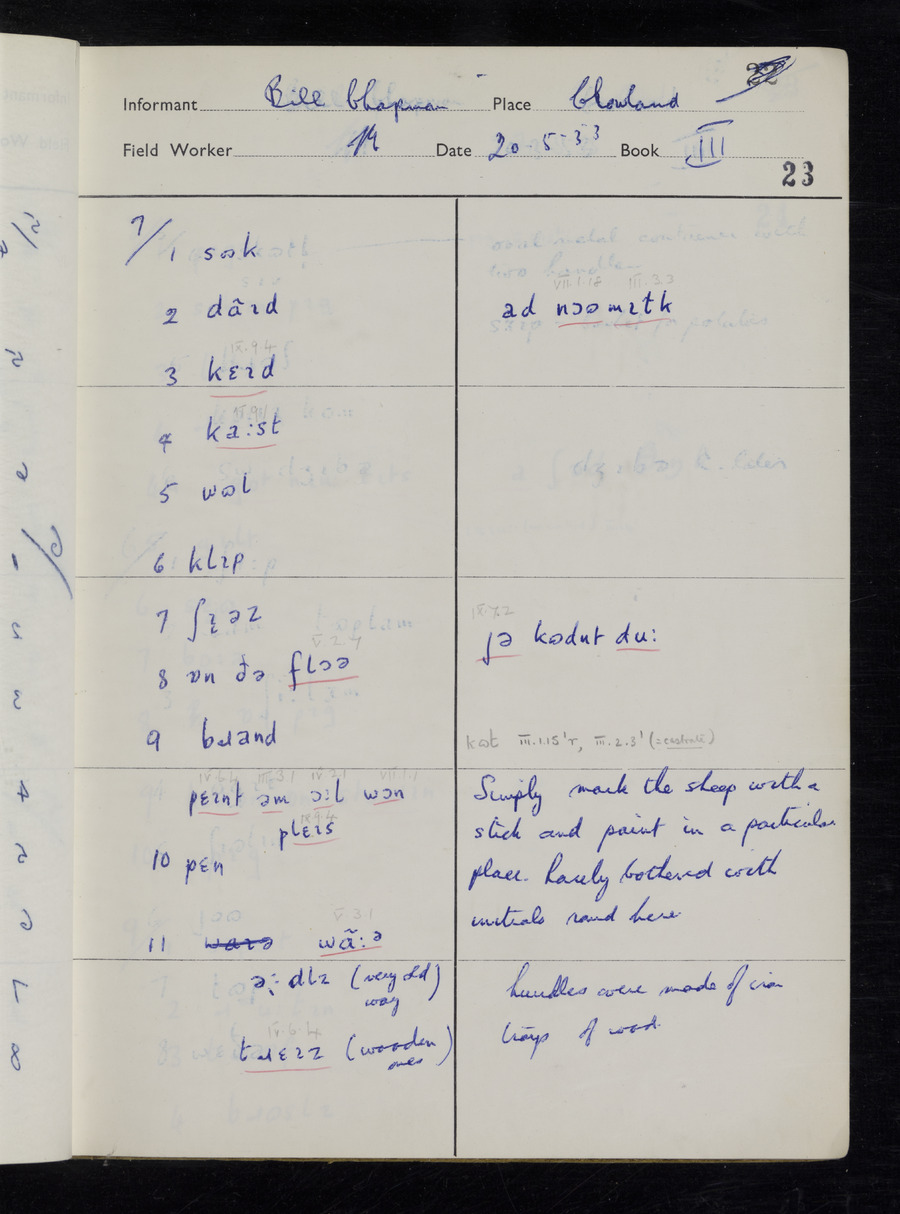 22
Informant Bill Chapman Place Clowland
Field Worker Date 20-5-53 Book III
23
7/1 sɷk
2 dãɪd
ad nɔɷmɪtk
VII.1.18 III.3.3
IX.9.4
3 kɛɪd
4 ka:st
5 wəl
6 klɪp
7 ʃɪəz
IX.4.2
jə kɷdnt du:
V.2.7
8 ɒn ðə flɔə
9 bɹand
kɷt III.1.15'r, III.2.3' (=castrate)
IV.6.4 III.3.1 IV.2.1 VII.1.1
pɛɪnt əm ɔ:l wɔn
IX.9.4
plɛɪs
10 pɛn
Simply mark the sheep with a
stick and paint in a particular
place. Rarely bothered with
initials round here
V.3.1
11 wã:ə
ə:dlz (very old way)
IV.6.4
tɹɛɪz (wooden ones)
hurdles were made of iron
trays of wood.